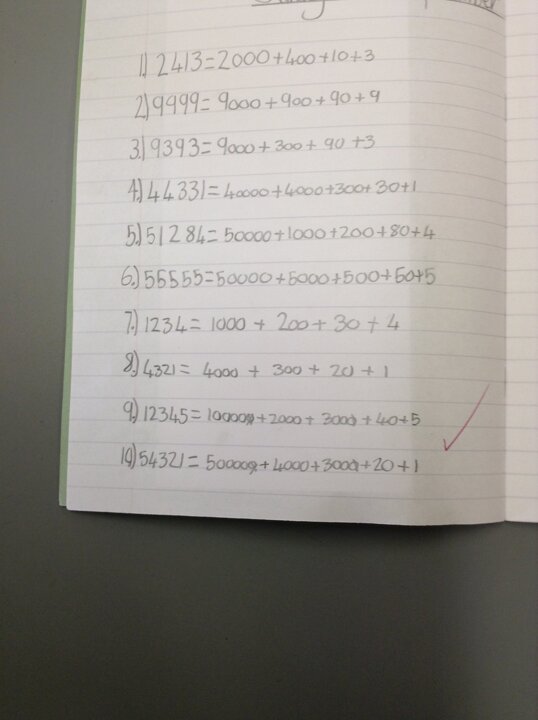 1.) 2413=2000+400+10+3
2.) 9999= 9000 + 900 + 90 + 9
3.) 9393= 9000 + 300 + 90 +3
4.) 44331= 40000 + 4000+300+30+1
5.) 51284= 50000+1000+200+80+4
6.) 55555=50000+5000+500+50+5
7.) 1234 = 1000 + 200 + 30 + 4
8.) 4321 = 4000 + 300 + 20 + 1
9.) 12345=10000+2000+300+40+5
10) 54321= 50000+4000+300+20+1